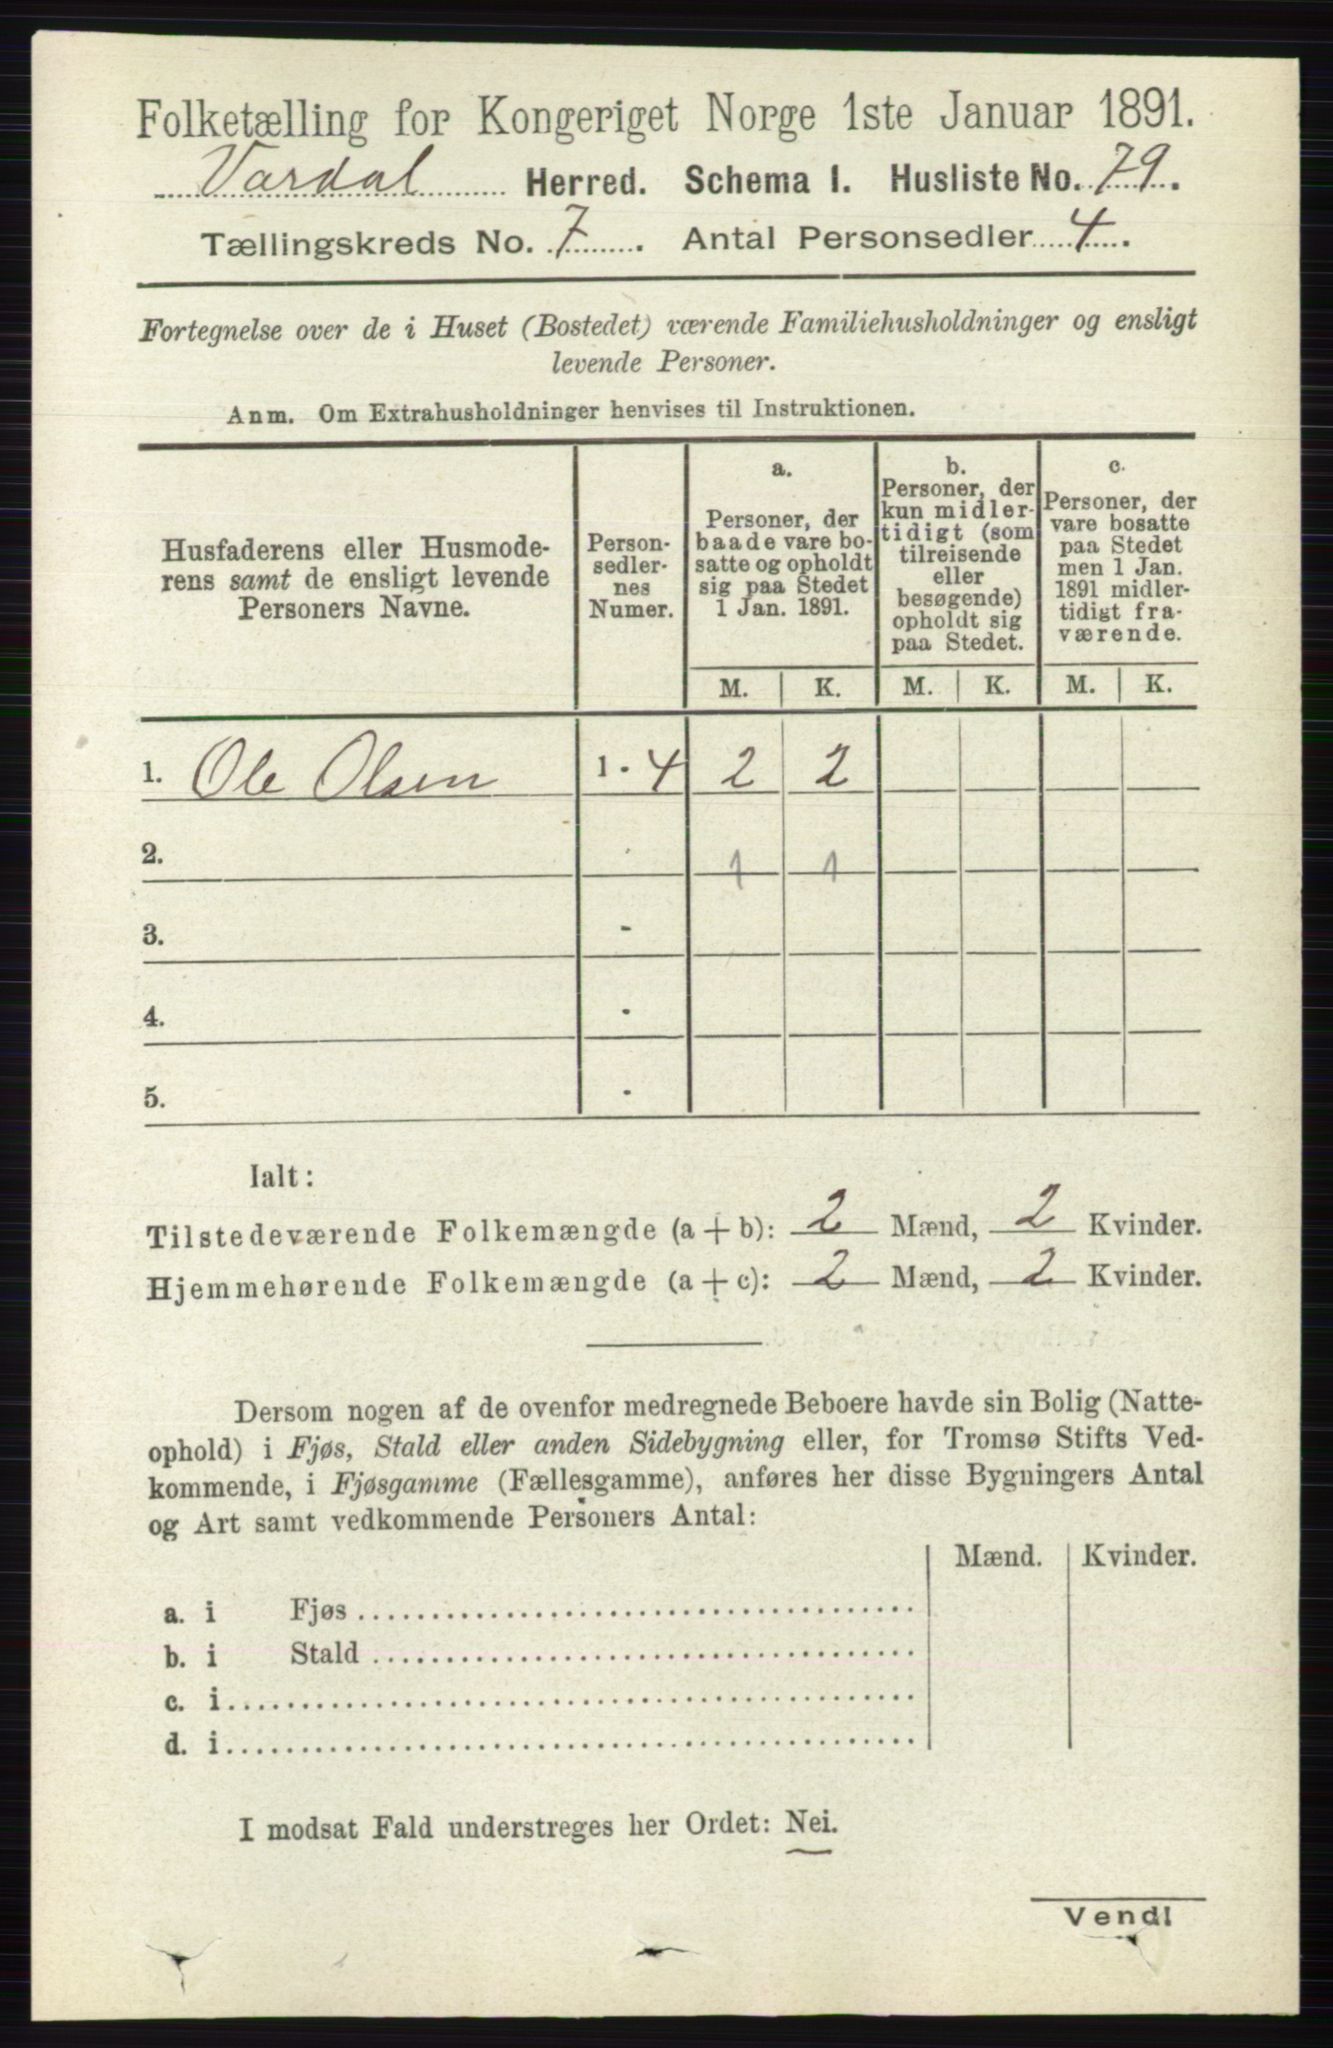 Folketælling for Kongeriget Norge 1ste Januar 1891.
Vardal Herred. Schema I. Husliste No. 79.
Tællingskreds No. 7. Antal Personsedler 4.
Fortegnelse over de i Huset (Bostedet) værende Familiehusholdninger og ensligt
levende Personer.
Anm. Om Extrahusholdninger henvises til Instruktionen.
Husfaderens eller Husmode-
rens samt de ensligt levende
Personers Navne.
Person-
sedler-
nes
Numer.
a.
Personer, der
baade vare bo-
satte og opholdt
sig paa Stedet
1 Jan. 1891.
b.
Personer, der
kun midler-
tidigt (som
tilreisende
eller
besøgende)
opholdt sig
paa Stedet.
c.
Personer, der
vare bosatte
paa Stedet
men 1 Jan.
1891 midler-
tidigt fra-
værende.
M. K. M. K. M. K.
1. Ole Olsen 1 - 4 2 2
2. 1 1
3. -
4. -
5. -
Ialt:
Tilstedeværende Folkemængde (a + b): 2 Mænd, 2 Kvinder.
Hjemmehørende Folkemængde (a + c): 2 Mænd, 2 Kvinder.
Dersom nogen af de ovenfor medregnede Beboere havde sin Bolig (Natte-
ophold) i Fjøs, Stald eller anden Sidebygning eller, for Tromsø Stifts Ved-
kommende, i Fjøsgamme (Fællesgamme), anføres her disse Bygningers Antal
og Art samt vedkommende Personers Antal:
Mænd. Kvinder.
a. i Fjøs
b. i Stald
c. i
d. i
I modsat Fald understreges her Ordet: Nei.
Vend!